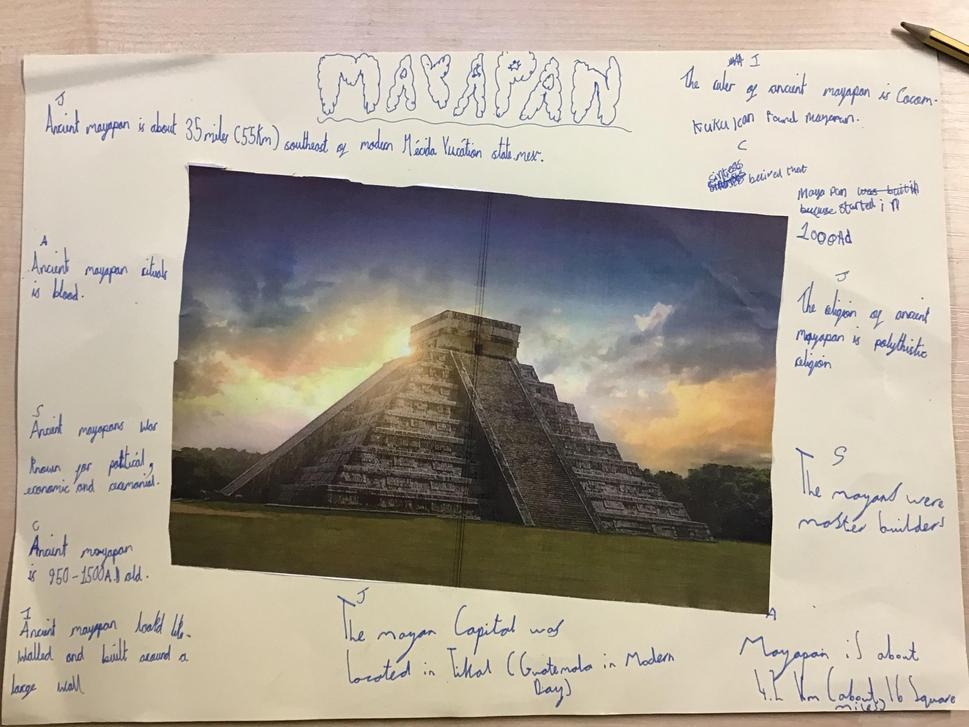 MAYAPAN
J
Ancient mayapan is about 35 miles (55km) southeast of modern Mécida Yucation state.mexr.
I
The ruler of ancient mayapan is Cocom.
Kukulcan found mayapan.
C
belived that
Maya pan was built in
because started in
1000Ad
A
Ancient mayapan rituals
is blood.
J
The religion of ancient
mayapan is polythistic
religion
S
Ancient mayapans war
Known for political,
economic and ceremonial.
S
The mayans were
master builders
C
Ancient mayapan
is 950-1500A.D old.
I
Ancient mayapan looked like
walled and built around a
large wall
J
The mayan Capital was
located in Tikal (Guatemala in Modern
Day)
A
Mayapan is about
4.2 Km (about 1.6 Square
miles)